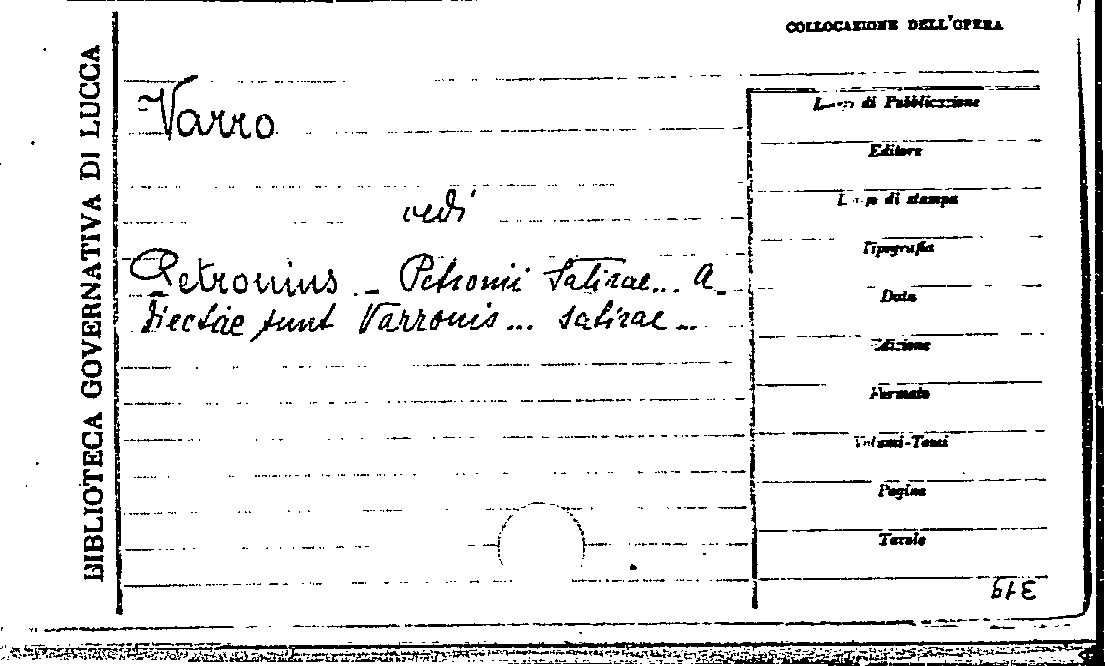 BIBLIOTECA GOVERNATIVA DI LUCCA
COLLOCAZIONE DELL'OPERA
Varro
vedi
Petronius - Petronii Satirae... A-
diectae sunt Varronis... satirae...
Luogo di Pubblicazione
Editore
Luogo di stampa
Tipografia
Data
Edizione
Formato
Volumi-Tomi
Pagine
Tavole
319